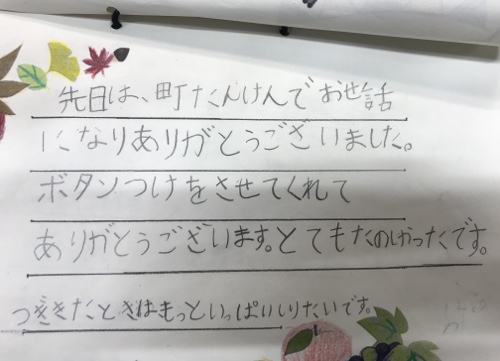 先日は、町たんけんでお世話
になりありがとうございました。
ボタンつけをさせてくれて
ありがとうございます。とてもたのしかったです。
つぎきたときはもっといっぱいしりたいです。